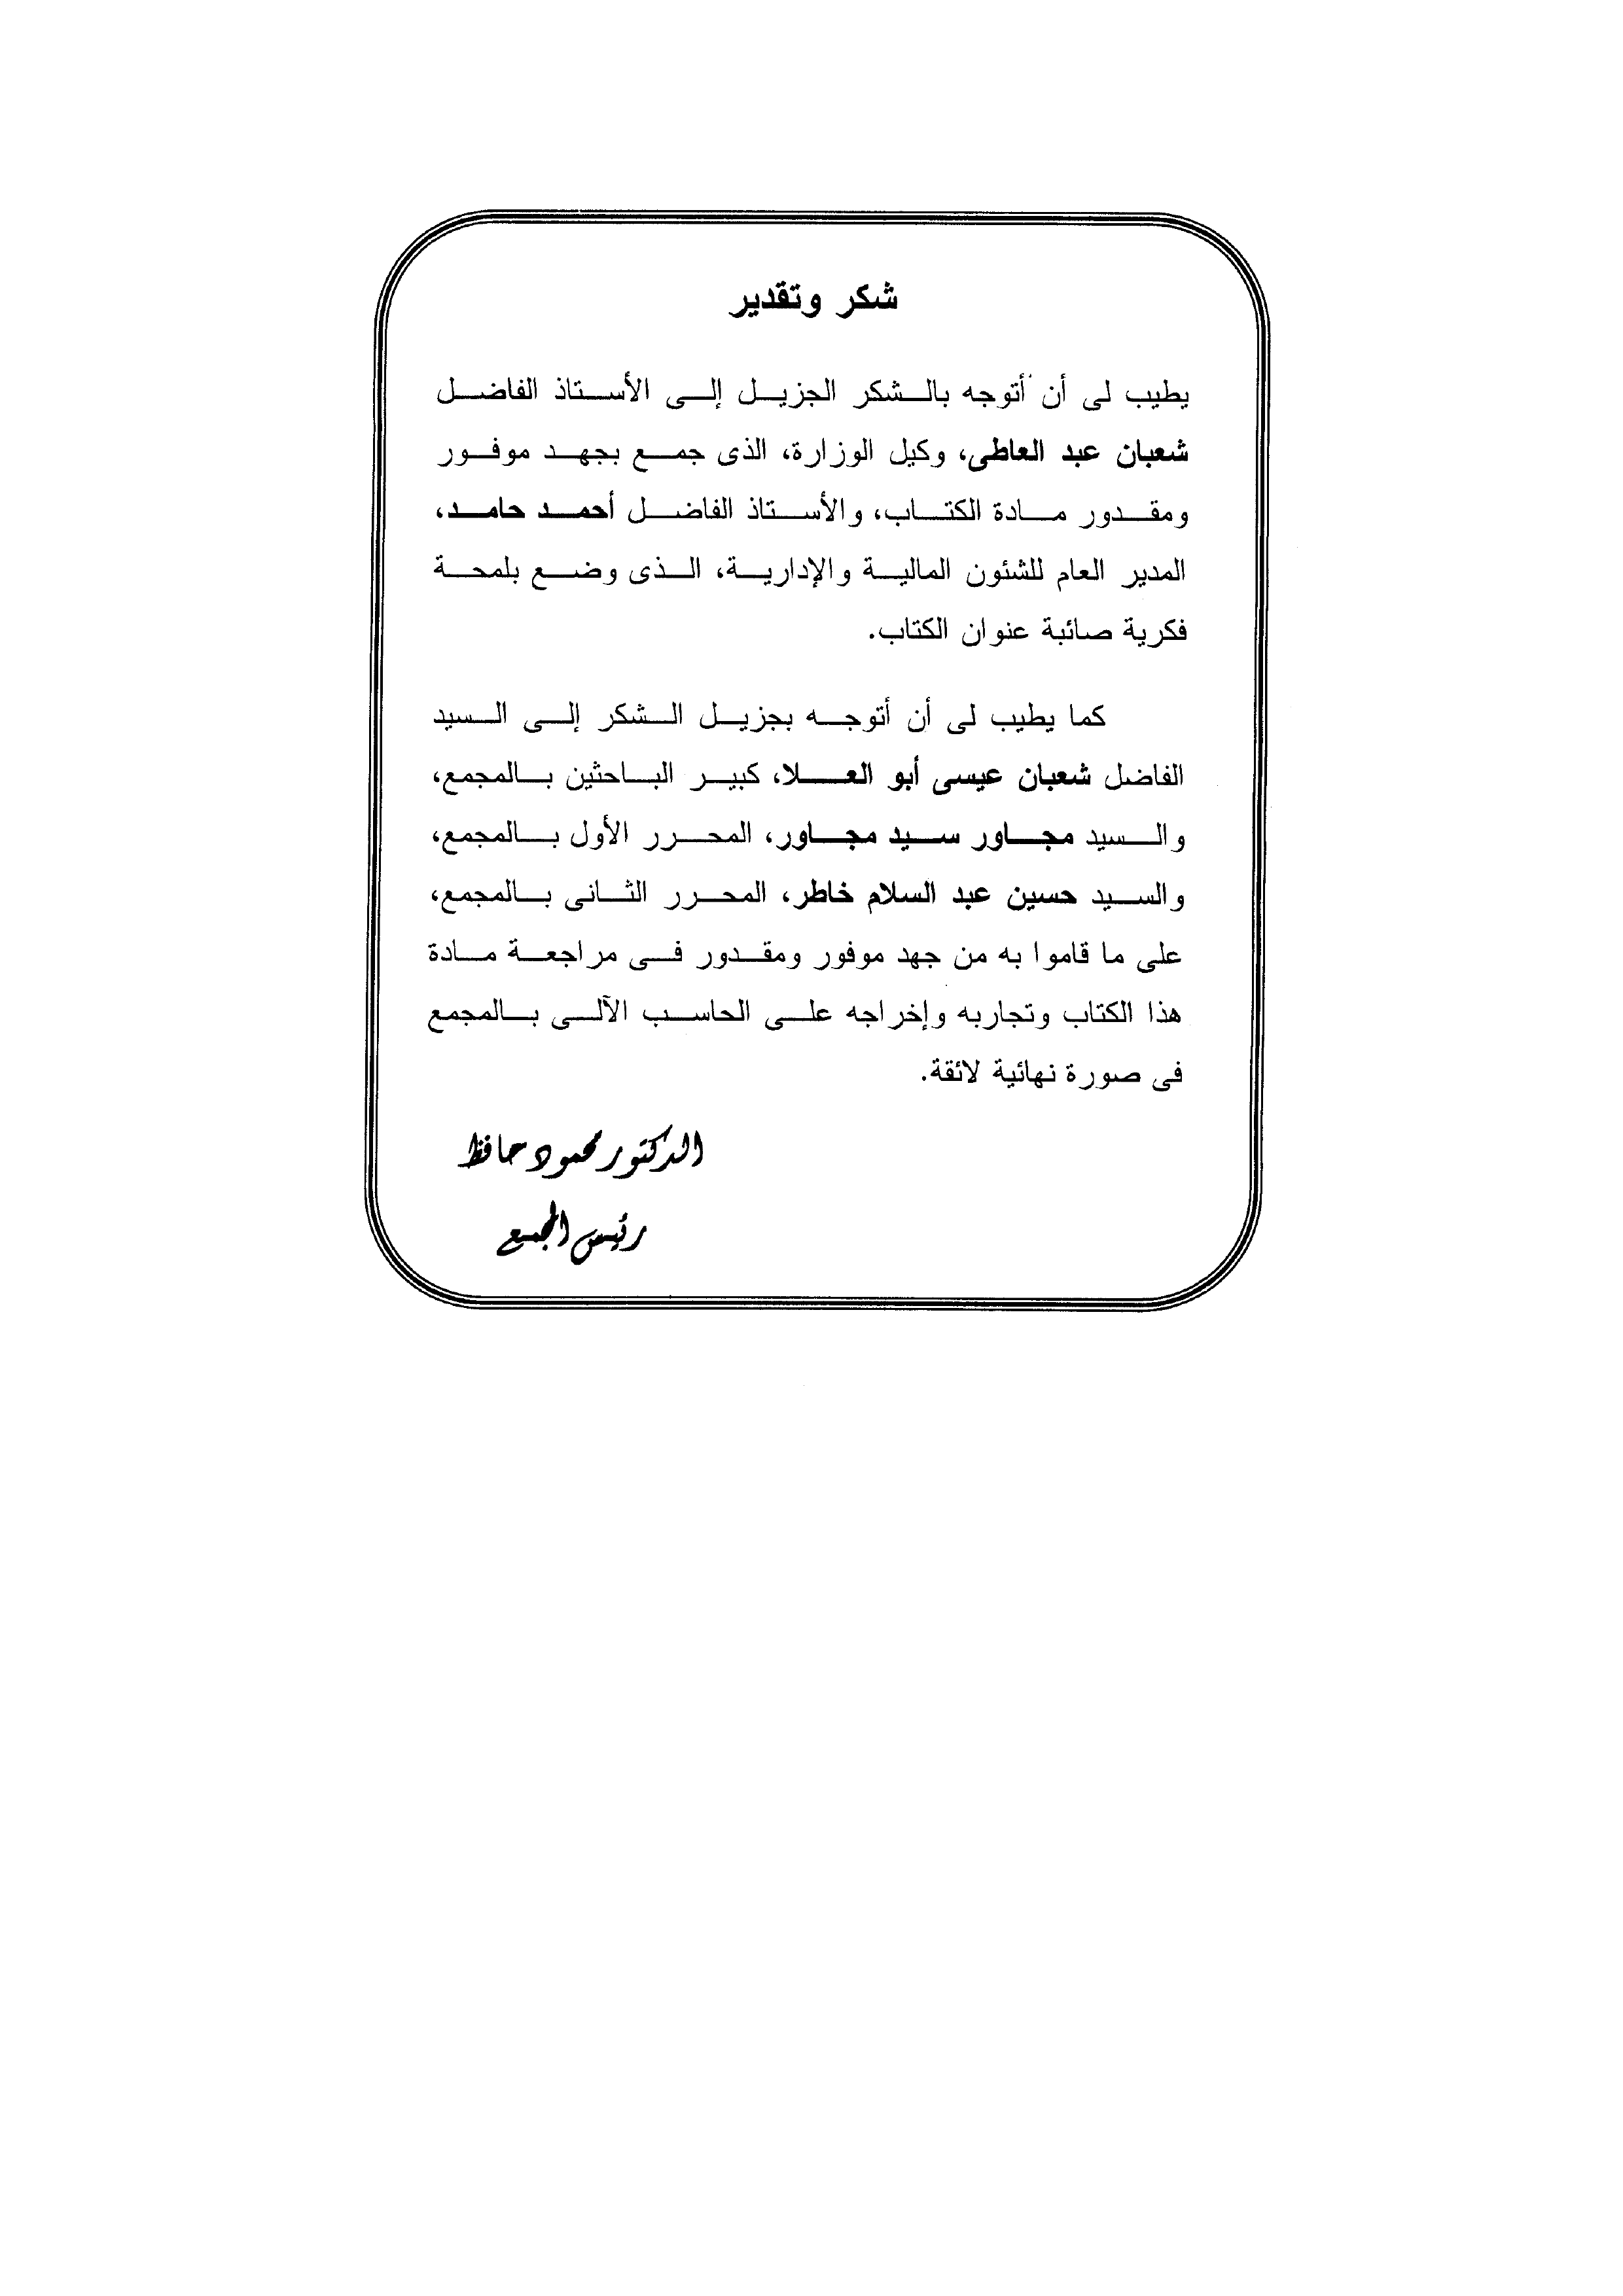 شكر وتقدير
يطيب لى أن أتوجه بالشكر الجزيل إلى الأستاذ الفاضل
شعبان عبد العاطى، وكيل الوزارة، الذى جمع بجهد موفور
ومقدور مادة الكتاب، والأستاذ الفاضل أحمد حامد،
المدير العام للشئون المالية والإدارية، الذى وضع بلمحة
فكرية صائبة عنوان الكتاب.
كما يطيب لى أن أتوجه بجزيل الشكر إلى السيد
الفاضل شعبان عيسى أبو العلا، كبير الباحثين بالمجمع،
والسيد مجاور سيد مجاور، المحرر الأول بالمجمع،
والسيد حسين عبد السلام خاطر، المحرر الثانى بالمجمع،
على ما قاموا به من جهد موفور ومقدور فى مراجعة مادة
هذا الكتاب وتجاربه وإخراجه على الحاسب الآلى بالمجمع
فى صورة نهائية لائقة.
الدكتور محمود حافظ
رئيس المجمع